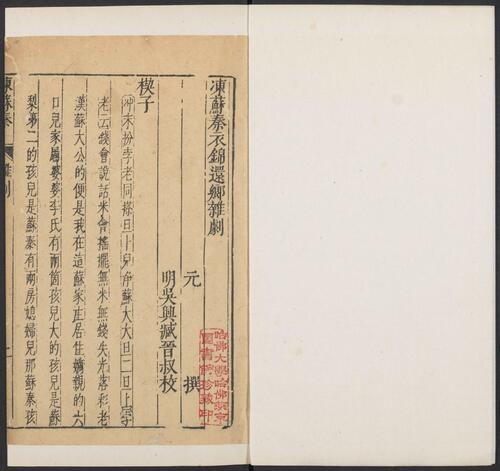 凍蘇秦衣錦還鄉雜劇
元 撰
明吳興臧晉叔校
哈佛大學哈佛燕京
圖書館珍藏印
楔子
冲末扮孛老同搽旦卜兒淨蘇大大旦二旦上孛
老云錢會說話米會搖擺無米無錢失光落彩老
漢蘇大公的便是我在這蘇家莊居住嫡親的六
口兒家屬婆婆李氏有兩箇孩兒大的孩兒是蘇
梨第二的孩兒是蘇秦有兩房媳婦兒那蘇秦孩
凍蘇秦
雜劇
一